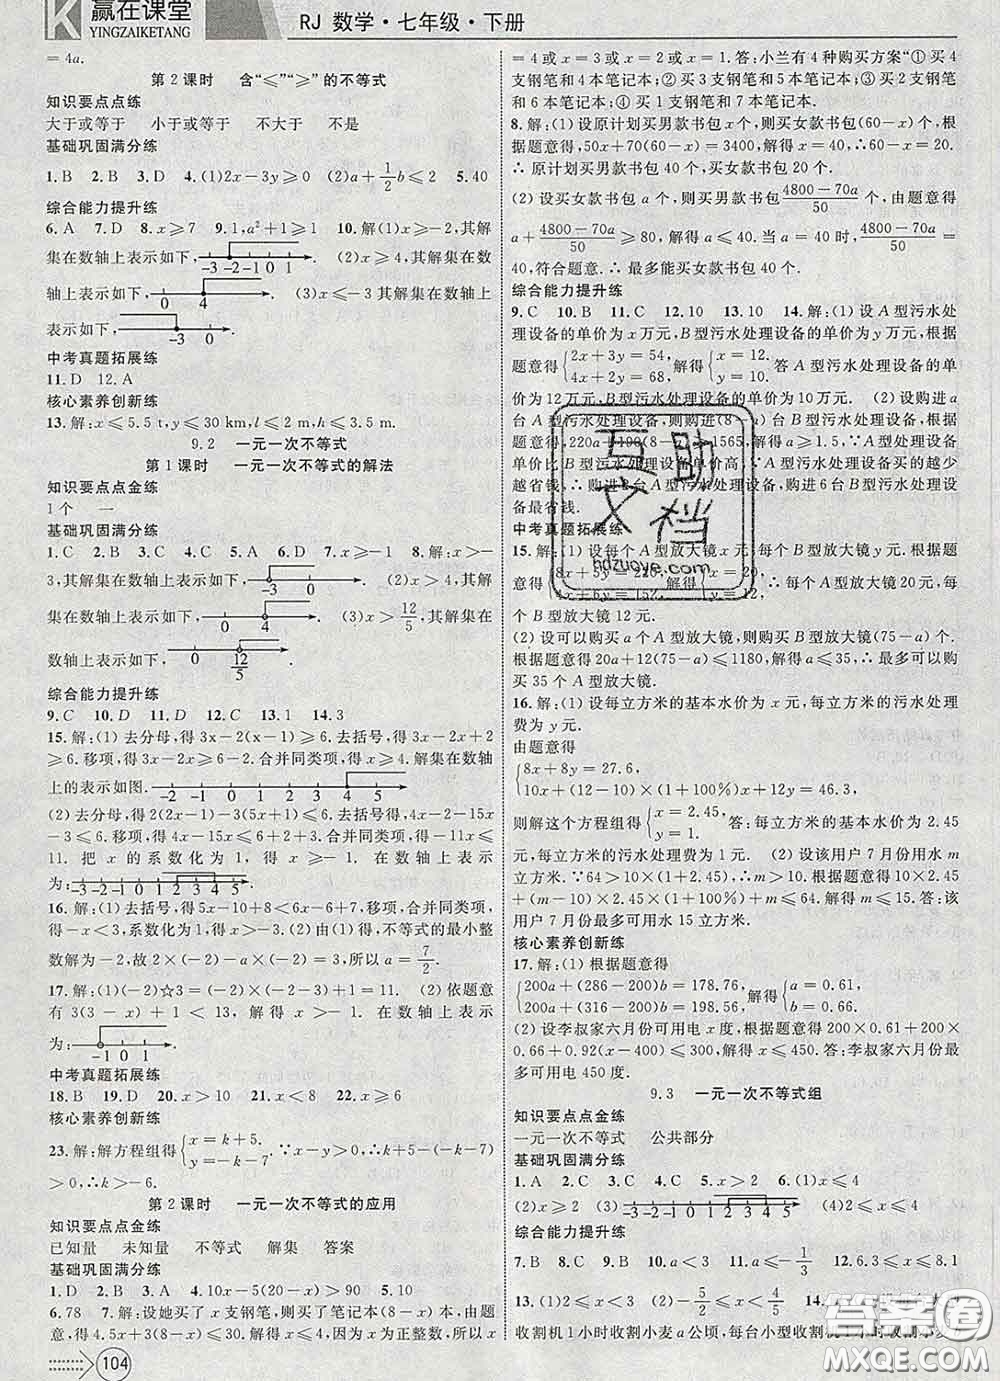 赢在课堂
YINGZAIKETANG
RJ 数学·七年级·下册
=4a.
第2课时 含“≤”“≥”的不等式
知识要点点练
大于或等于 小于或等于 不大于 不是
基础巩固满分练
1.B 2.B 3.D 4.(1)2x-3y≥0 (2)a+1/2b≤2 5.40
综合能力提升练
6.A 7.D 8.x≥7 9.1,a²+1≥1 10.解(1)x≥-2,其解
集在数轴上表示如下, -3 -2 -1 0 1 . (2)x≥4,其解集在数
轴上表示如下, 0 4 . (3)x≤-3其解集在数轴上
表示如下, -3 0 .
中考真题拓展练
11.D 12.A
核心素养创新练
13.解:x≤5.5 t,y≤30 km,l≤2 m,h≤3.5 m.
9.2 一元一次不等式
第1课时 一元一次不等式的解法
知识要点点金练
1个 一
基础巩固满分练
1.C 2.B 3.C 4.A 5.A 6.D 7.x≥-1 8.解:x>-
3,其解集在数轴上表示如下, -3 0 . (2)x>4,其解
集在数轴上表示如下, 0 4 . (3)x>12/5,其解集在
数轴上表示如下, 0 12/5 .
综合能力提升练
9.C 10.D 11.D 12.C 13.1 14.3
15.解:(1)去分母,得3x-2(x-1)≥6.去括号,得3x-2x+2
≥6.移项,得3x-2x≥6-2.合并同类项,得x≥4.解集在数轴
上的表示如图. -2 -1 0 1 2 3 4 5
(2)去分母,得2(2x-1)-3(5x+1)≤6.去括号,得4x-2-15x
-3≤6.移项,得4x-15x≤6+2+3.合并同类项,得-11x≤
11.把x的系数化为1,得x≥-1.在数轴上表示
为: -3 -2 -1 0 1 2 3 4 5 .
16.解:(1)去括号,得5x-10+8<6x-6+7,移项,合并同类项,
得-x<3,系数化为1,得x>-3.(2)由(1)得,不等式的最小整
数解为-2,故2×(-2)-a×(-2)=3,所以a=7/2.
17.解:(1)(-2)☆3=(-2)×(-2-3)+1=11. (2)依题意
有3(3-x)+1<13,解得x>-1.在数轴上表示
为: -1 0 1 .
中考真题拓展练
18.B 19.D 20.x>10 21.x<8 22.x≥6
核心素养创新练
23.解:解方程组得{x=k+6. y=-k-7. ∵x>0,y<0,∴k+6-5(-k-7)
>0.∴k>-6.
第2课时 一元一次不等式的应用
知识要点点金练
已知量 未知量 不等式 解集 答案
基础巩固满分练
1.D 2.B 3.A 4.10x-5(20-x)>90 5.10
6.78 7.解:设她买了x支钢笔,则买了笔记本(8-x)本,由题
=4或x=3或x=2或x=1.答:小兰有4种购买方案“①买4
支钢笔和4本笔记本;②买3支钢笔和5本笔记本;③买2支钢笔
和6本笔记本;④买1支钢笔和7本笔记本.
8.解:(1)设原计划买男款书包x个,则买女款书包(60-x)个,根
据题意得,50x+70(60-x)=3400,解得x=40,∴60-x=20.
∴原计划买男款书包40个,买女款书包20个.
(2)设买女款书包a个,则买男款书包(4800-70a)/50个,由题意得
a+(4800-70a)/50≥80,解得a≤40.当a=40时,(4800-70a)/50=
40,符合题意.∴最多能买女款书包40个.
综合能力提升练
9.C 10.B 11.C 12.10 13.10 14.解:(1)设A型污水处
理设备的单价为x万元,B型污水处理设备的单价为y万元,根据
题意得{2x+3y=54, 4x+2y=68, 解得{x=12. y=10. 答A型污水处理设备的单
价为12万元,B型污水处理设备的单价为10万元. (2)设购进a
中考真题拓展练
(2)设可以购买a个A型放大镜,则购买B型放大镜(75-a)个.
根据题意得20a+12(75-a)≤1180,解得a≤35,∴最多可以购
买35个A型放大镜.
16.解:(1)设每立方米的基本水价为x元,每立方米的污水处理
费为y元.
由题意得
{8x+8y=27.6,
10x+(12-10)×(1+100%)x+12y=46.3,
则解这个方程组得{x=2.45, y=1. 答:每立方米的基本水价为2.45
元,每立方米的污水处理费为1元. (2)设该用户7月份用水m
立方米.∵64>10×2.45+10×1,∴m>10.根据题意得10×2.45
+(m-10)×2.45×(1+100%)+m≤64,解得m≤15.答:该
用户7月份最多可用水15立方米.
核心素养创新练
17.解:(1)根据题意得
{200a+(286-200)b=178.76,
200a+(316-200)b=198.56, 解得{a=0.61, b=0.66.
(2)设李叔家六月份可用电x度,根据题意得200×0.61+200×
0.66+0.92(x-400)≤300,解得x≤450.答:李叔家六月份最
多可用电450度.
9.3 一元一次不等式组
知识要点点金练
一元一次不等式 公共部分
基础巩固满分练
1.A 2.C 3.A 4.C 5.x>2 6.(1)x≤4
(2)x≥2 (3) -3 -2 -1 0 1 2 3 4 5 (4)2≤x≤4
综合能力提升练
7.B 8.C 9.B 10.a<3 11.a≤-1/3 12.6.3≤x≤8.1
收割机1小时收割小麦a公顷,每台小型收割机1小时收割小麦
104
互助文档
hdzuoye.com
答案圈
MXQE.COM